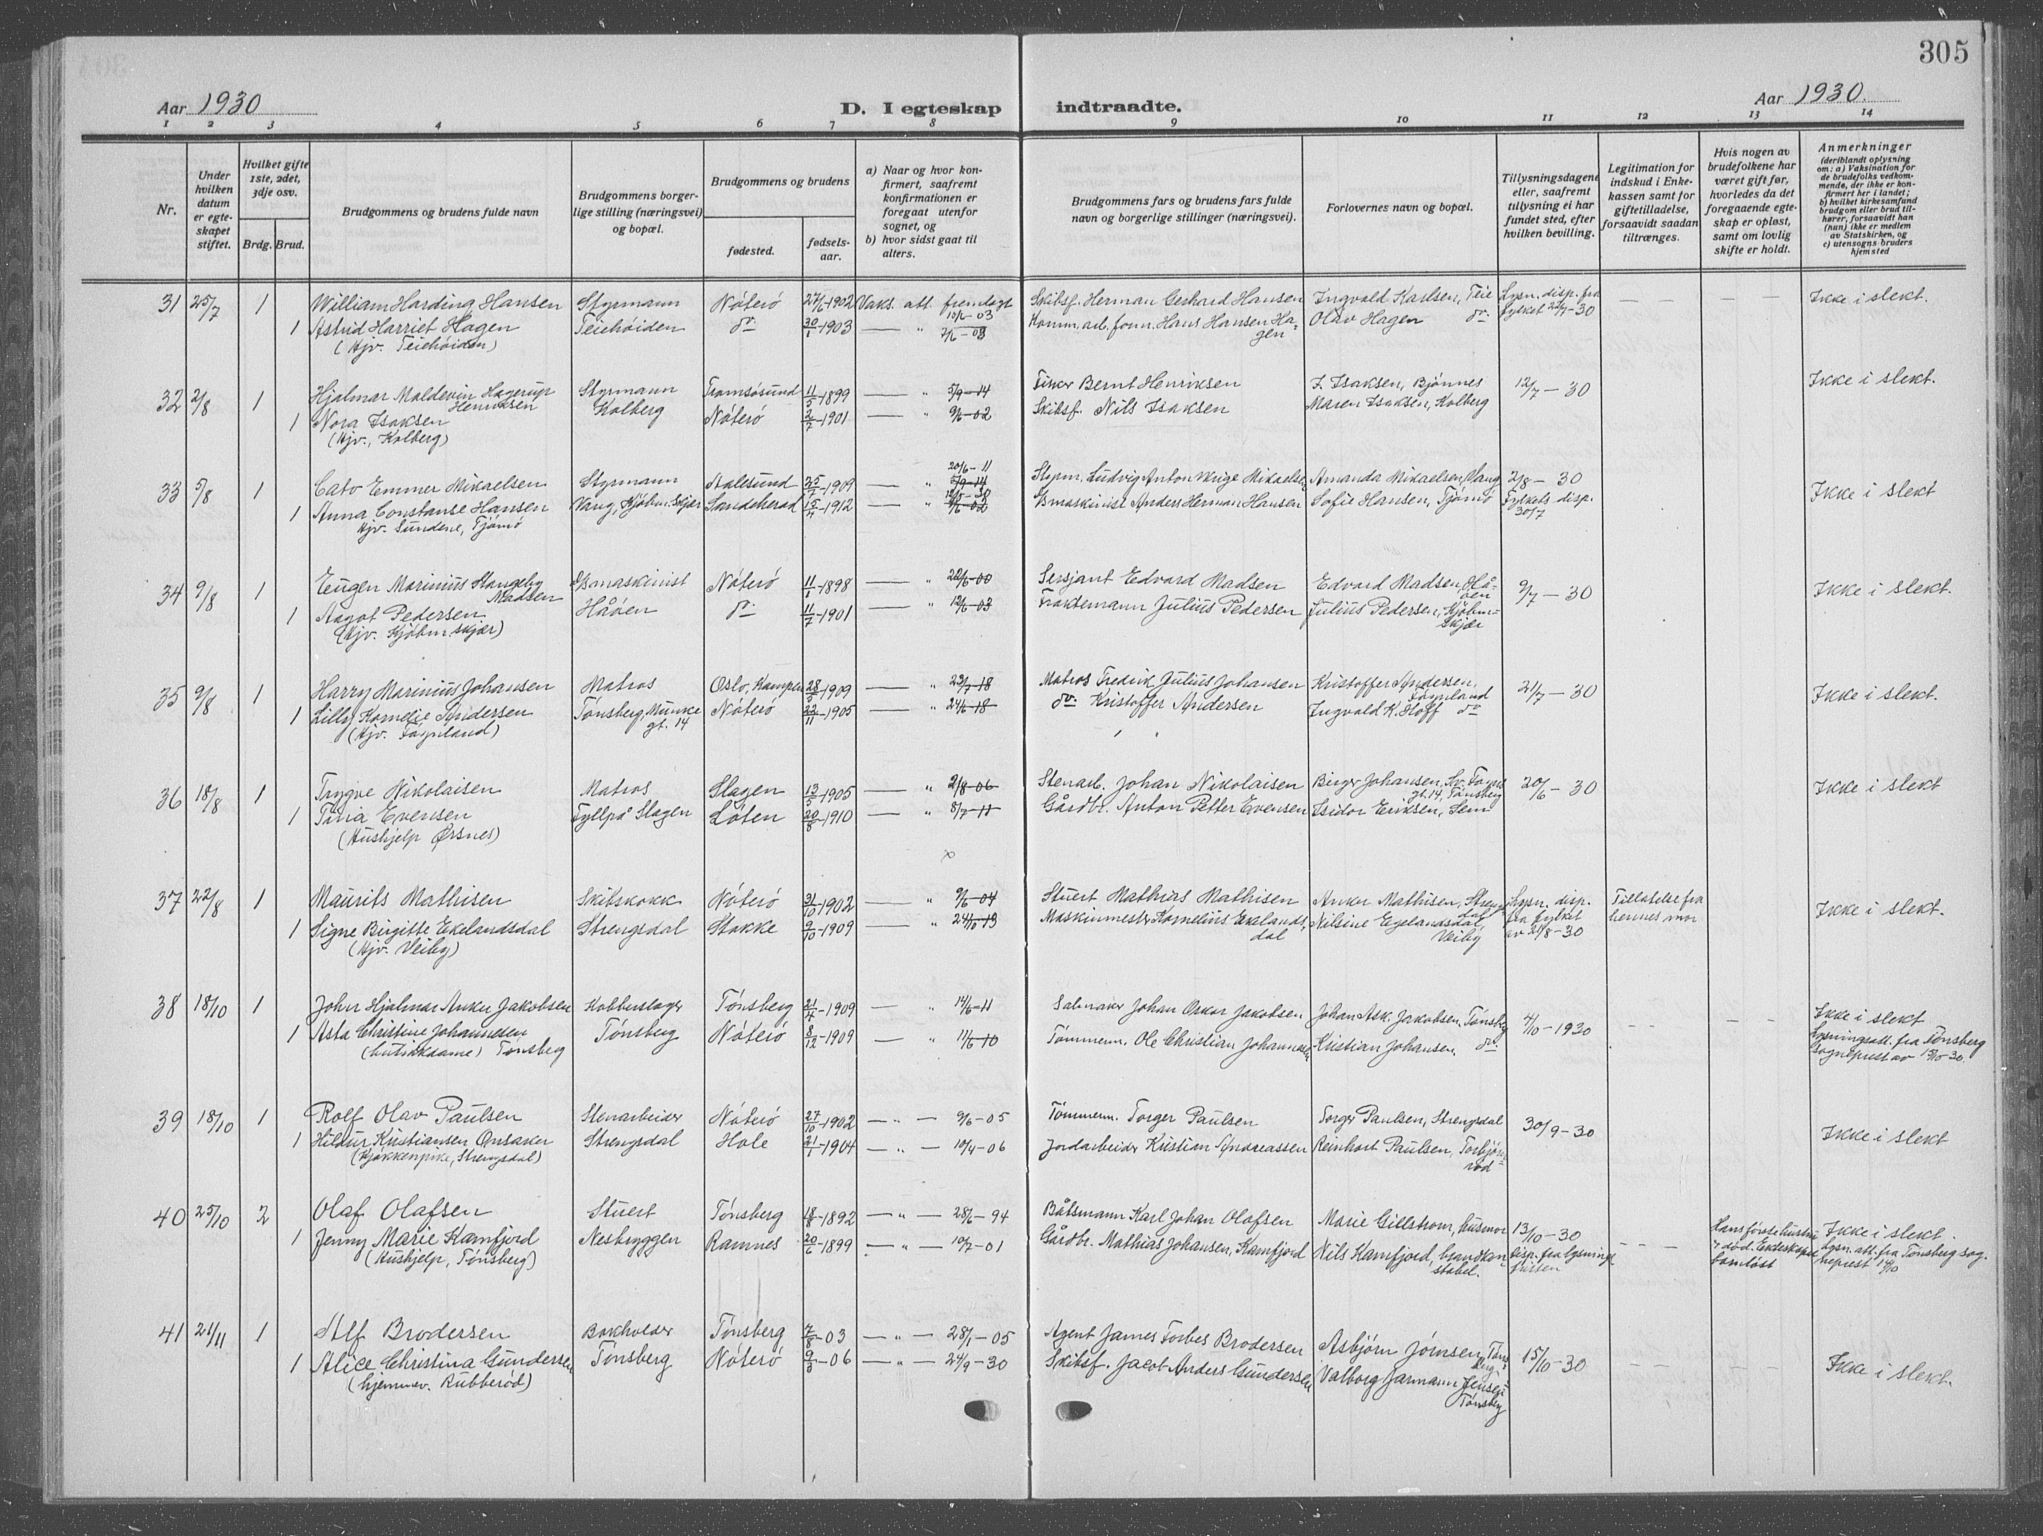 305
Aar 1930
D. I egteskap indtraadte.
Aar 1930.
1 2 3 4 5 6 7 8 9 10 11 12 13 14
Nr.
Under hvilken datum er egteskapet stiftet.
Hvilket gifte 1ste, 2det, 3dje osv.
Brdg. Brud.
Brudgommens og brudens fulde navn
Brudgommens borgerlige stilling (næringsvei) og bopæl.
Brudgommens og brudens
fødested.
fødselsaar.
a) Naar og hvor konfirmert, saafremt konfirmationen er foregaat utenfor sognet, og
b) hvor sidst gaat til alters.
Brudgommens fars og brudens fars fulde navn og borgerlige stillinger (næringsvei).
Forlovernes navn og bopæl.
Tillysningsdagene eller, saafremt tillysning ei har fundet sted, efter hvilken bevilling.
Legitimation for indskud i Enkekassen samt for giftetilladelse, forsaavidt saadan tiltrænges.
Hvis nogen av brudefolkene har været gift før, hvorledes da det foregaaende egteskap er opløst, samt om lovlig skifte er holdt.
Anmerkninger (deriblandt oplysning om: a) Vaksination for de brudefolks vedkommende, der ikke er konfirmert her i landet; b) hvilket kirkesamfund brudgom eller brud tilhører, forsaavidt han (hun) ikke er medlem av Statskirken, og c) utensogns bruders hjemsted
31 25/7 1 William Harding Hansen Styrmann Nøterø 27/6-1902 Vaks. att. fremlagt Skibsf. Herman Gerhard Hansen Ingvald Karlsen, Teie Lysn. disp. fra — — Ikke i slekt.
1 Astrid Harriet Hagen Teiehøiden do 30/1-1903 — " 10/6-03 Komm. arb. form. Hans Hansen Hagen Olav Hagen do fylket 22/7-30
(Hjv. Teiehøiden)
32 2/8 1 Hjalmar Maldevin Hagerup Henriksen Styrmann Tromsøsund 11/5-1899 — " 5/9-14 Fisker Bernt Henriksen J. Isaksen, Bjønnes 12/7-30 Ikke i slekt.
1 Nora Isaksen Kolberg Nøterø 2/7-1901 — " 9/6-02 Skibsf. Nils Isaksen Maren Isaksen, Kolberg
(Hjv., Kolberg)
33 5/8 1 Cato Emmer Mikaelsen Styrmann Aalesund 25/7-1909 — " 20/6-11 5/9-14 Styrm. Ludvig Anton Mikaelsen Amanda Mikaelsen, Vang 2/8-30 Ikke i slekt
1 Anna Constanse Hansen Vang, Kjøbm.skjær Sandeherad 15/4-1912 — " Bmaskinist Anders Herman Hansen Sofie Hansen, Tjømø Fylkets disp. 30/7
Hjv. Sundene, Tjømø
34 9/8 1 Eugen Marinius Stangeby Madsen Bmaskinist Nøterø 11/1-1898 — " 22/6-00 Sersjant Edvard Madsen Edvard Madsen, 9/7-30 Ikke i slekt.
1 Aagot Pedersen Håøen do 11/7-1901 — " 12/6-03 Fraktemann Julius Pedersen Julius Pedersen, Kjøbmskjær
(Hjv. Kjøbmskjær)
35 9/8 1 Harry Marinius Johansen Matros Oslo, Kampen 28/5-1909 — " 23/7-18 Matros Fredrik Julius Johansen Kristoffer Andersen, Føynland 21/7-30 Ikke i slekt.
1 Lilly Kornelie Andersen Tønsberg, Munkegt. 14 Nøterø 22/11-1905 — " 24/6-18 do Kristoffer Andersen Ingvald K. Hoff do
(Hjv. Føynland)
36 18/8 1 Trygve Nikolaisen Matros Slagen 13/5-1905 — " 21/8-06 Stenarb. Johan Nikolaisen Birger Johansen, gt. 14, Tønsberg 20/6-30 Ikke i slekt
1 Tora Evensen Fyllpå Slagen Løten 20/8-1910 — " 8/7-11 Gårdbr. Anton Petter Evensen Isidor Eriksen, Sem
(Hushjelp Ørsnes)
37 22/8 1 Maurits Mathisen Skibskokk Nøterø 31/10-1902 — " 9/6-04 Stuert Mathias Mathisen Anker Mathisen, Strengsdal Lysn. disp. Tillatelse fra Ikke i slekt.
1 Signe Birgitte Ekelandsdal Strengsdal Stokke 9/10-1909 — " 24/10-13 Maskinmester Kornelius Ekelandsdal Nilsine Egelandsdal, Veiby fra fylket av 21/8-30 hennes mor
(Hjv. Veiby)
38 18/10 1 John Hjalmar Anker Jakobsen Kobberslager Tønsberg 21/4-1909 — " 14/6-11 Salmaker Johan Oskar Jakobsen Johan Ask. Jakobsen, Tønsberg 4/10-1930 — — Ikke i slekt
1 Asta Christine Johannesen Tønsberg Nøterø 8/12-1909 — " 11/6-10 Tømmerm. Ole Christian Johannesen Kristian Johansen, do Lysningsatt. fra Tønsberg
(butikkdame) Tønsberg sogneprest av 15/10-30
39 18/10 1 Rolf Olav Paulsen Stenarbeider Nøterø 27/10-1902 — " — 9/6-05 Tømmerm. Torger Paulsen Torger Paulsen, Strengsdal 30/9-30 Ikke i slekt
1 Hildur Kristiansen Onsaker Strengsdal Hole 21/1-1904 — " — 10/4-06 Jordarbeider Kristian Andreassen Reinhart Paulsen, Torbjønrød
(Kjøkkenpike, Strengsdal)
40 25/10 2 Olaf Olafsen Stuert Tønsberg 18/8-1892 — " — 28/6-94 Båtsmann Karl Johan Olafsen Marie Gillstrom, husmor 13/10-30 Hans første hustru Ikke i slekt.
1 Jenny Marie Kamfjord Nesbryggen Ramnes 20/6-1899 — " — 10/7-01 Gårdbr. Mathias Johansen, Kamfjord Nils Kamfjord, brandkonstabel. Disp. fra lysnings fristen — — død. Ekteskapet barnløst Lysn. att. fra Tønsberg sogneprest
(Hushjelp, Tønsberg)
41 21/11 1 Alf Brodersen Bokholder Tønsberg 7/8-03 — " — 28/1-05 Agent James Forbes Brodersen Asbjørn Jørnsen, Tønsberg 15/10-30
1 Alice Christina Gundersen Tønsberg Nøterø 9/8-06 — " — 24/9-30 Skibsf. Jacob Anders Gundersen Valborg Jarmann Jensen, Tønsberg — — Ikke i slekt.
(hjemmev. Rubberød)